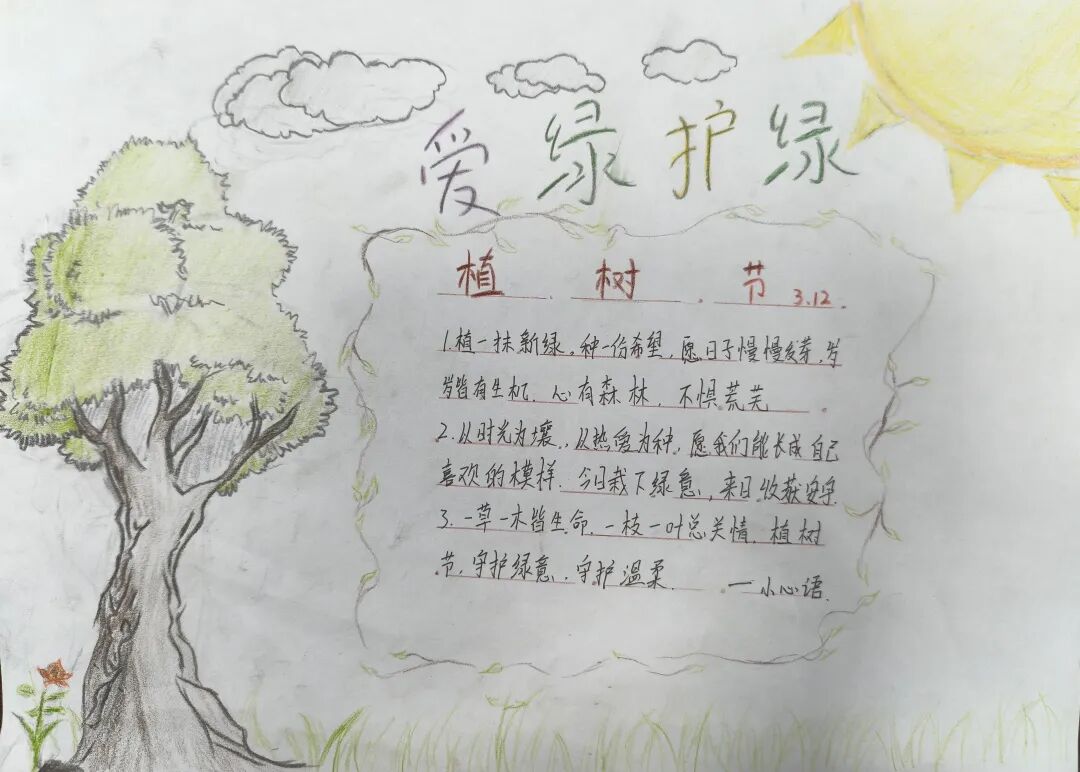 爱绿护绿
植 树 节 3.12.
1.植一抹新绿。种一份希望,愿日子慢慢发芽,岁
岁皆有生机,心有森林,不惧荒芜
2.以时光为壤,以热爱为种,愿我们能长成自己
喜欢的模样.今日栽下绿意,来日收获安宁
3.一草一木皆生命.一枝一叶总关情.植树
节,守护绿意,守护温柔.——小心语.